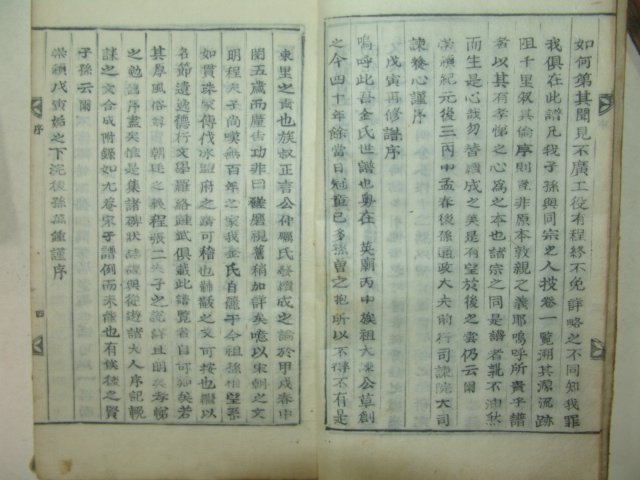 如何第其聞見不廣工役有程終不免詳略之不同知我罪
我俱在此譜凡我子孫與同宗之人投卷一覧溯其源流跡
阻千里叙其倫序則豈非原本敦親之義耶嗚呼所貴乎譜
者以其有孝悌之心爲之本也諸宗之同是譜者孰不油然
而生是心哉勿替續成之美是有望於後之雲仍云爾
崇禎紀元後三丙中孟春後孫通政大夫前行司諫院大司
諫 心謹序
戊寅再修譜序
嗚呼此吾金氏世譜也粤在 英廟丙申族祖大諫公草創
之今四十年餘當日冠童已多孫曾之抱所以不得不有是
東里之 也族叔正言公仲 氏發續成之論於甲戌春中
閏五歲而廣告功非曰磋磨視舊稍加詳矣噫以宋朝之文
明程夫子尚嘆無百年之家我金氏自麗乎今祖孫相望
如貫珠家傳伐氷盟府之 可稽也黼黻之文可按也繼以
名節遺逸德行文學羅絡踵武俱載此譜覧者自可知矣若
其厚風俗尊朝廷之義程張二夫子之說詳且明矣孝悌
之勉舊序盡矣惟是集諸碑狀 與從遊諸大人序記輓
誄之文合成附錄如九卷宋子譜例而未能也有俟後之賢
子孫云爾
崇禎戊寅姤之下浣後孫 鍾謹序
序
四